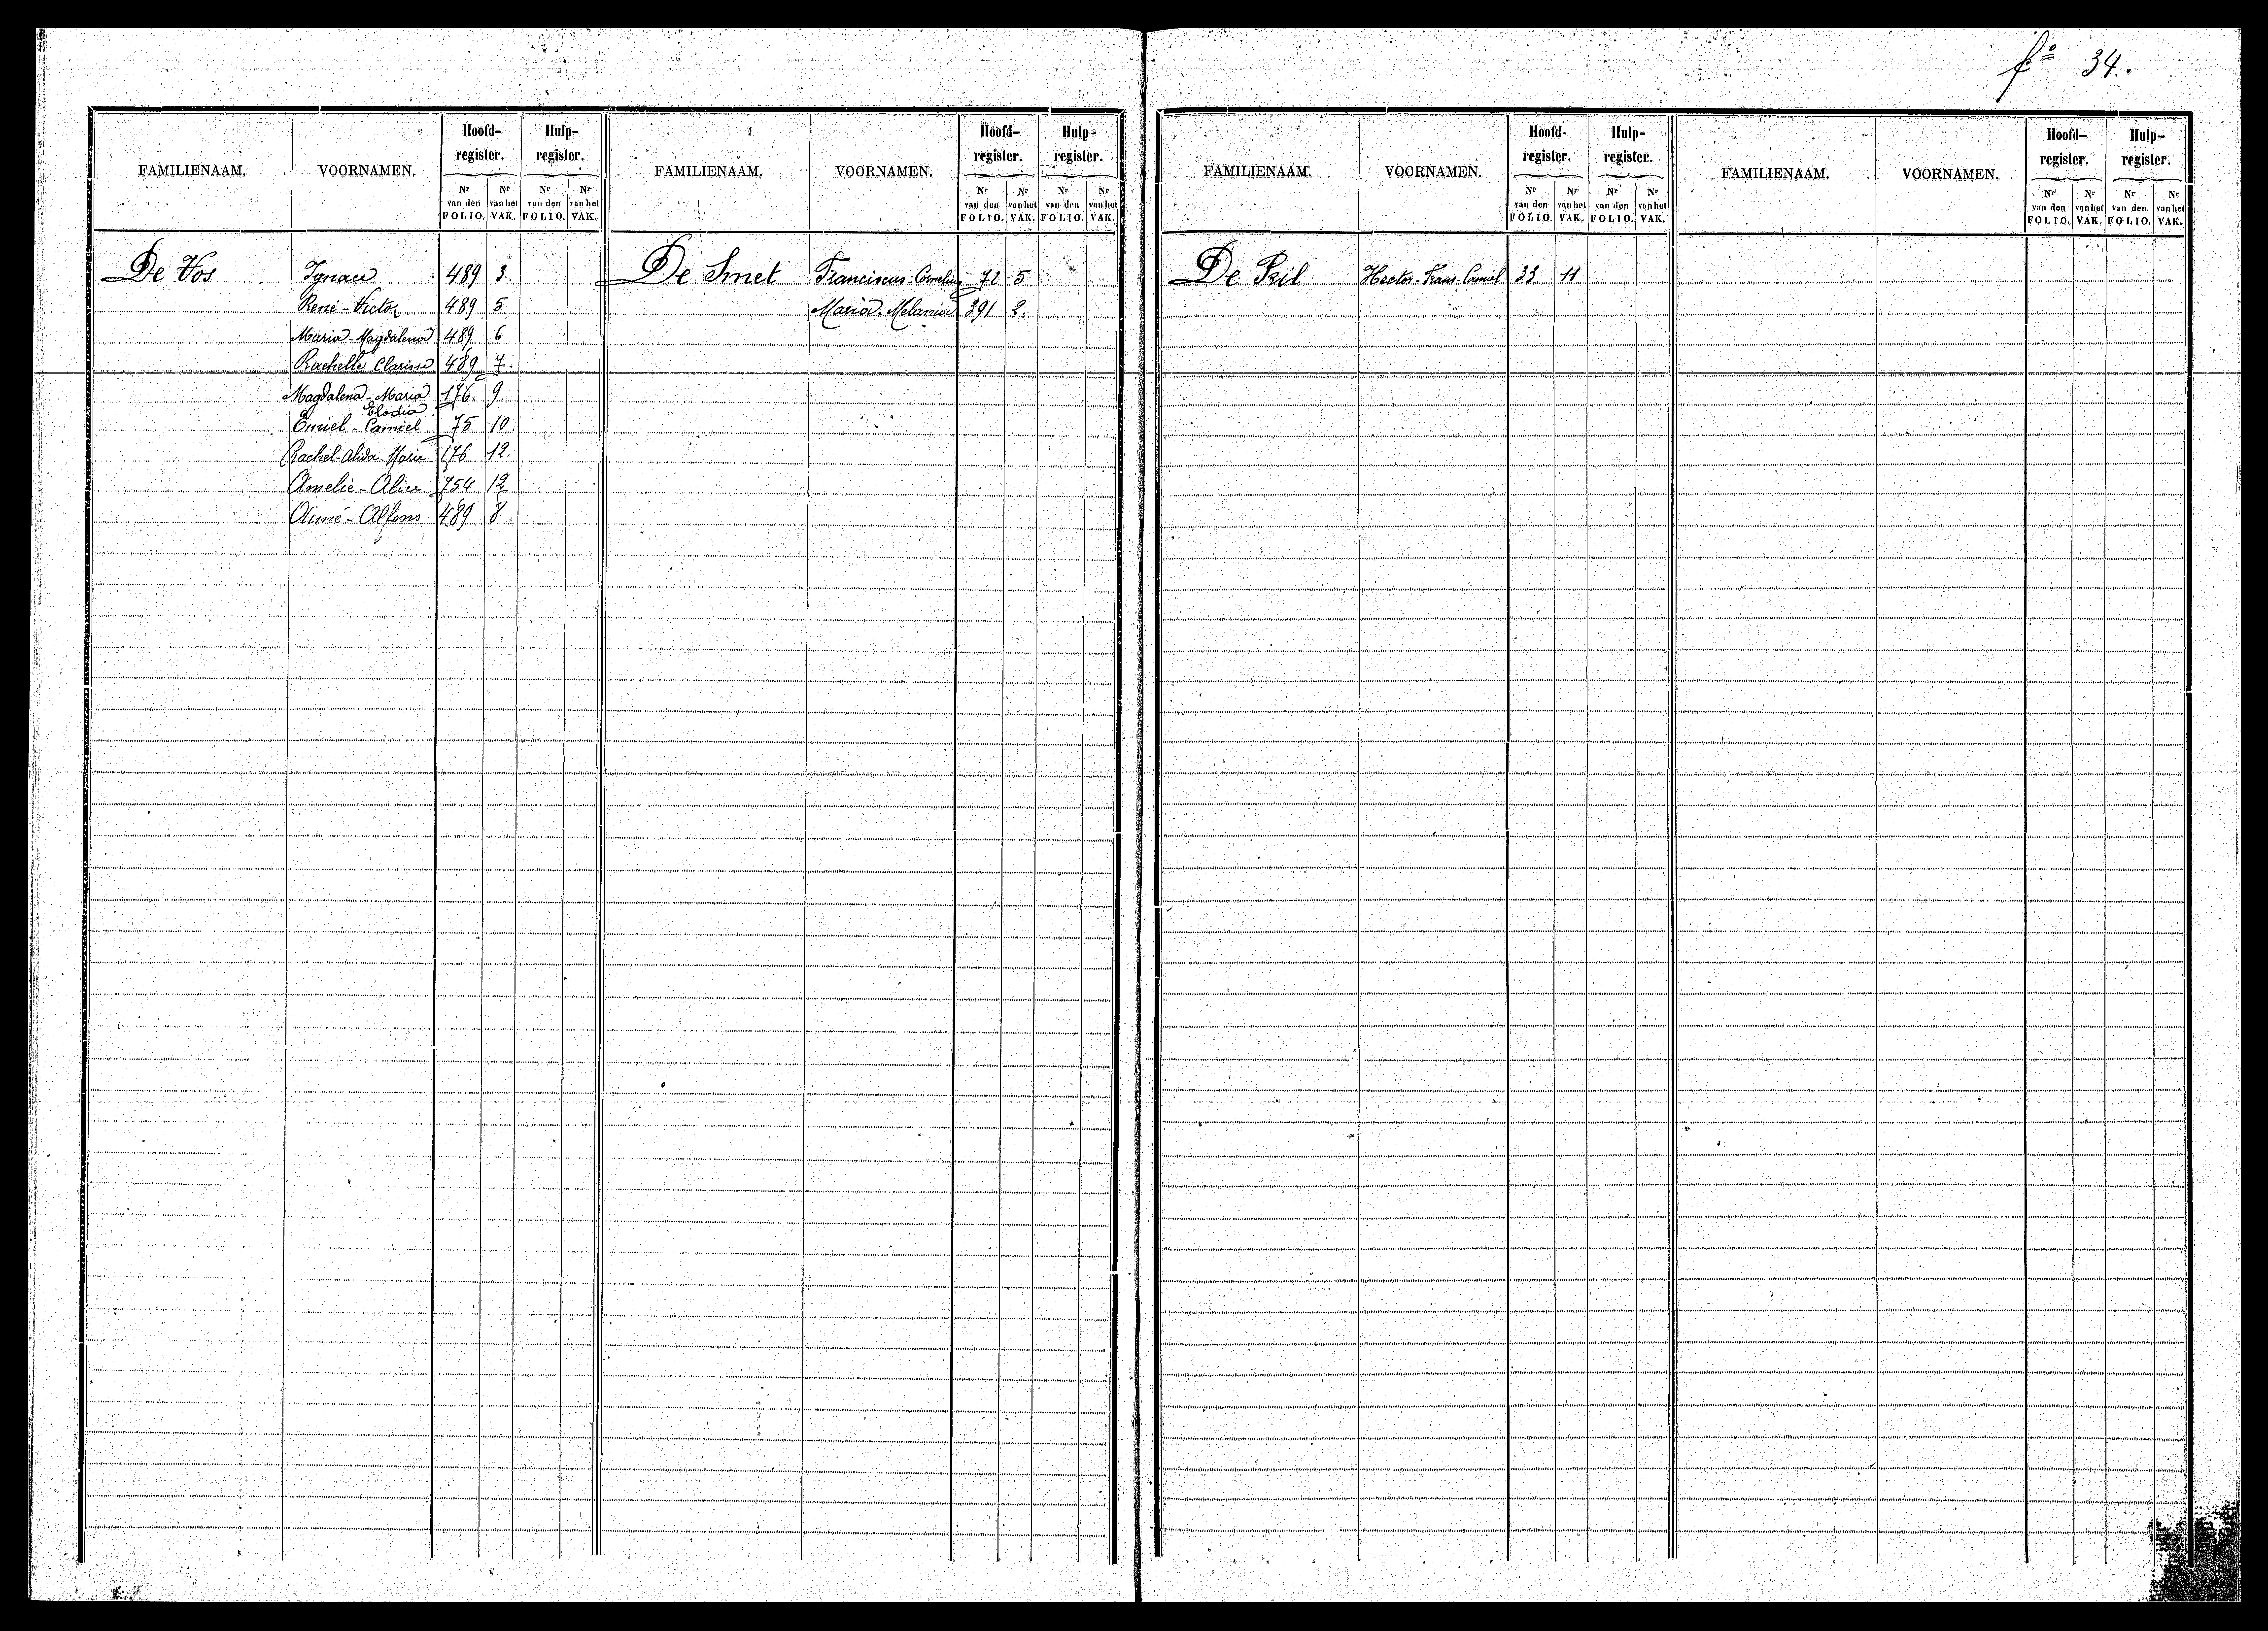 fº 34.
FAMILIENAAM. VOORNAMEN. Hoofd-register. Hulp-register.
Nr van den FOLIO. Nr van het VAK. Nr van den FOLIO. Nr van het VAK.
De Vos Ignace 489 3.
René-Victor 489 5
Maria-Magdalena 489 6
Rachelle Clarisse 489 7.
Magdalena-Maria 176. 9.
Elodia
Emiel-Camiel 75 10.
Rachel-Alida-Marie 176 12.
Amelie-Alice 754 12
Aimé-Alfons 489 8.
FAMILIENAAM. VOORNAMEN. Hoofd-register. Hulp-register.
Nr van den FOLIO. Nr van het VAK. Nr van den FOLIO. Nr van het VAK.
De Smet Franciscus-Cornelius 72 5
Maria-Melania 391 2.
FAMILIENAAM. VOORNAMEN. Hoofd-register. Hulp-register.
Nr van den FOLIO. Nr van het VAK. Nr van den FOLIO. Nr van het VAK.
De Pril Hector-Frans-Camiel 33 11
FAMILIENAAM. VOORNAMEN. Hoofd-register. Hulp-register.
Nr van den FOLIO. Nr van het VAK. Nr van den FOLIO. Nr van het VAK.